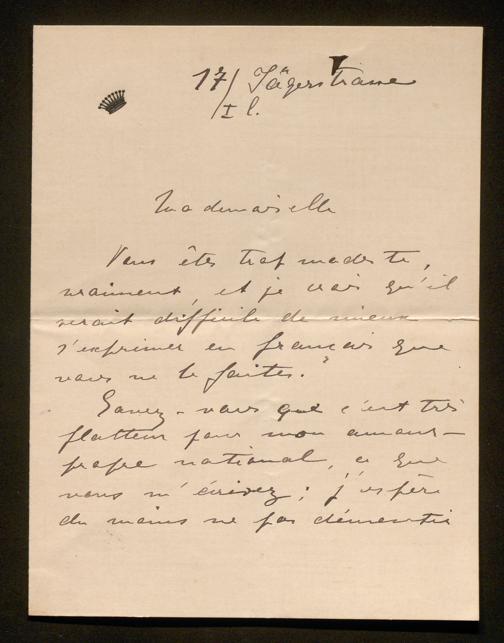 17/ Jägerstrasse
/I l.
Mademoiselle
Vous êtes trop modeste,
vraiment, et je crois qu'il
serait difficile de mieux
s'exprimer en français que
vous ne le faites.
Savez-vous que c'est très
flatteur pour mon amour-
propre national, ce que
vous m'écrivez; j'espère
du moins ne pas démentir